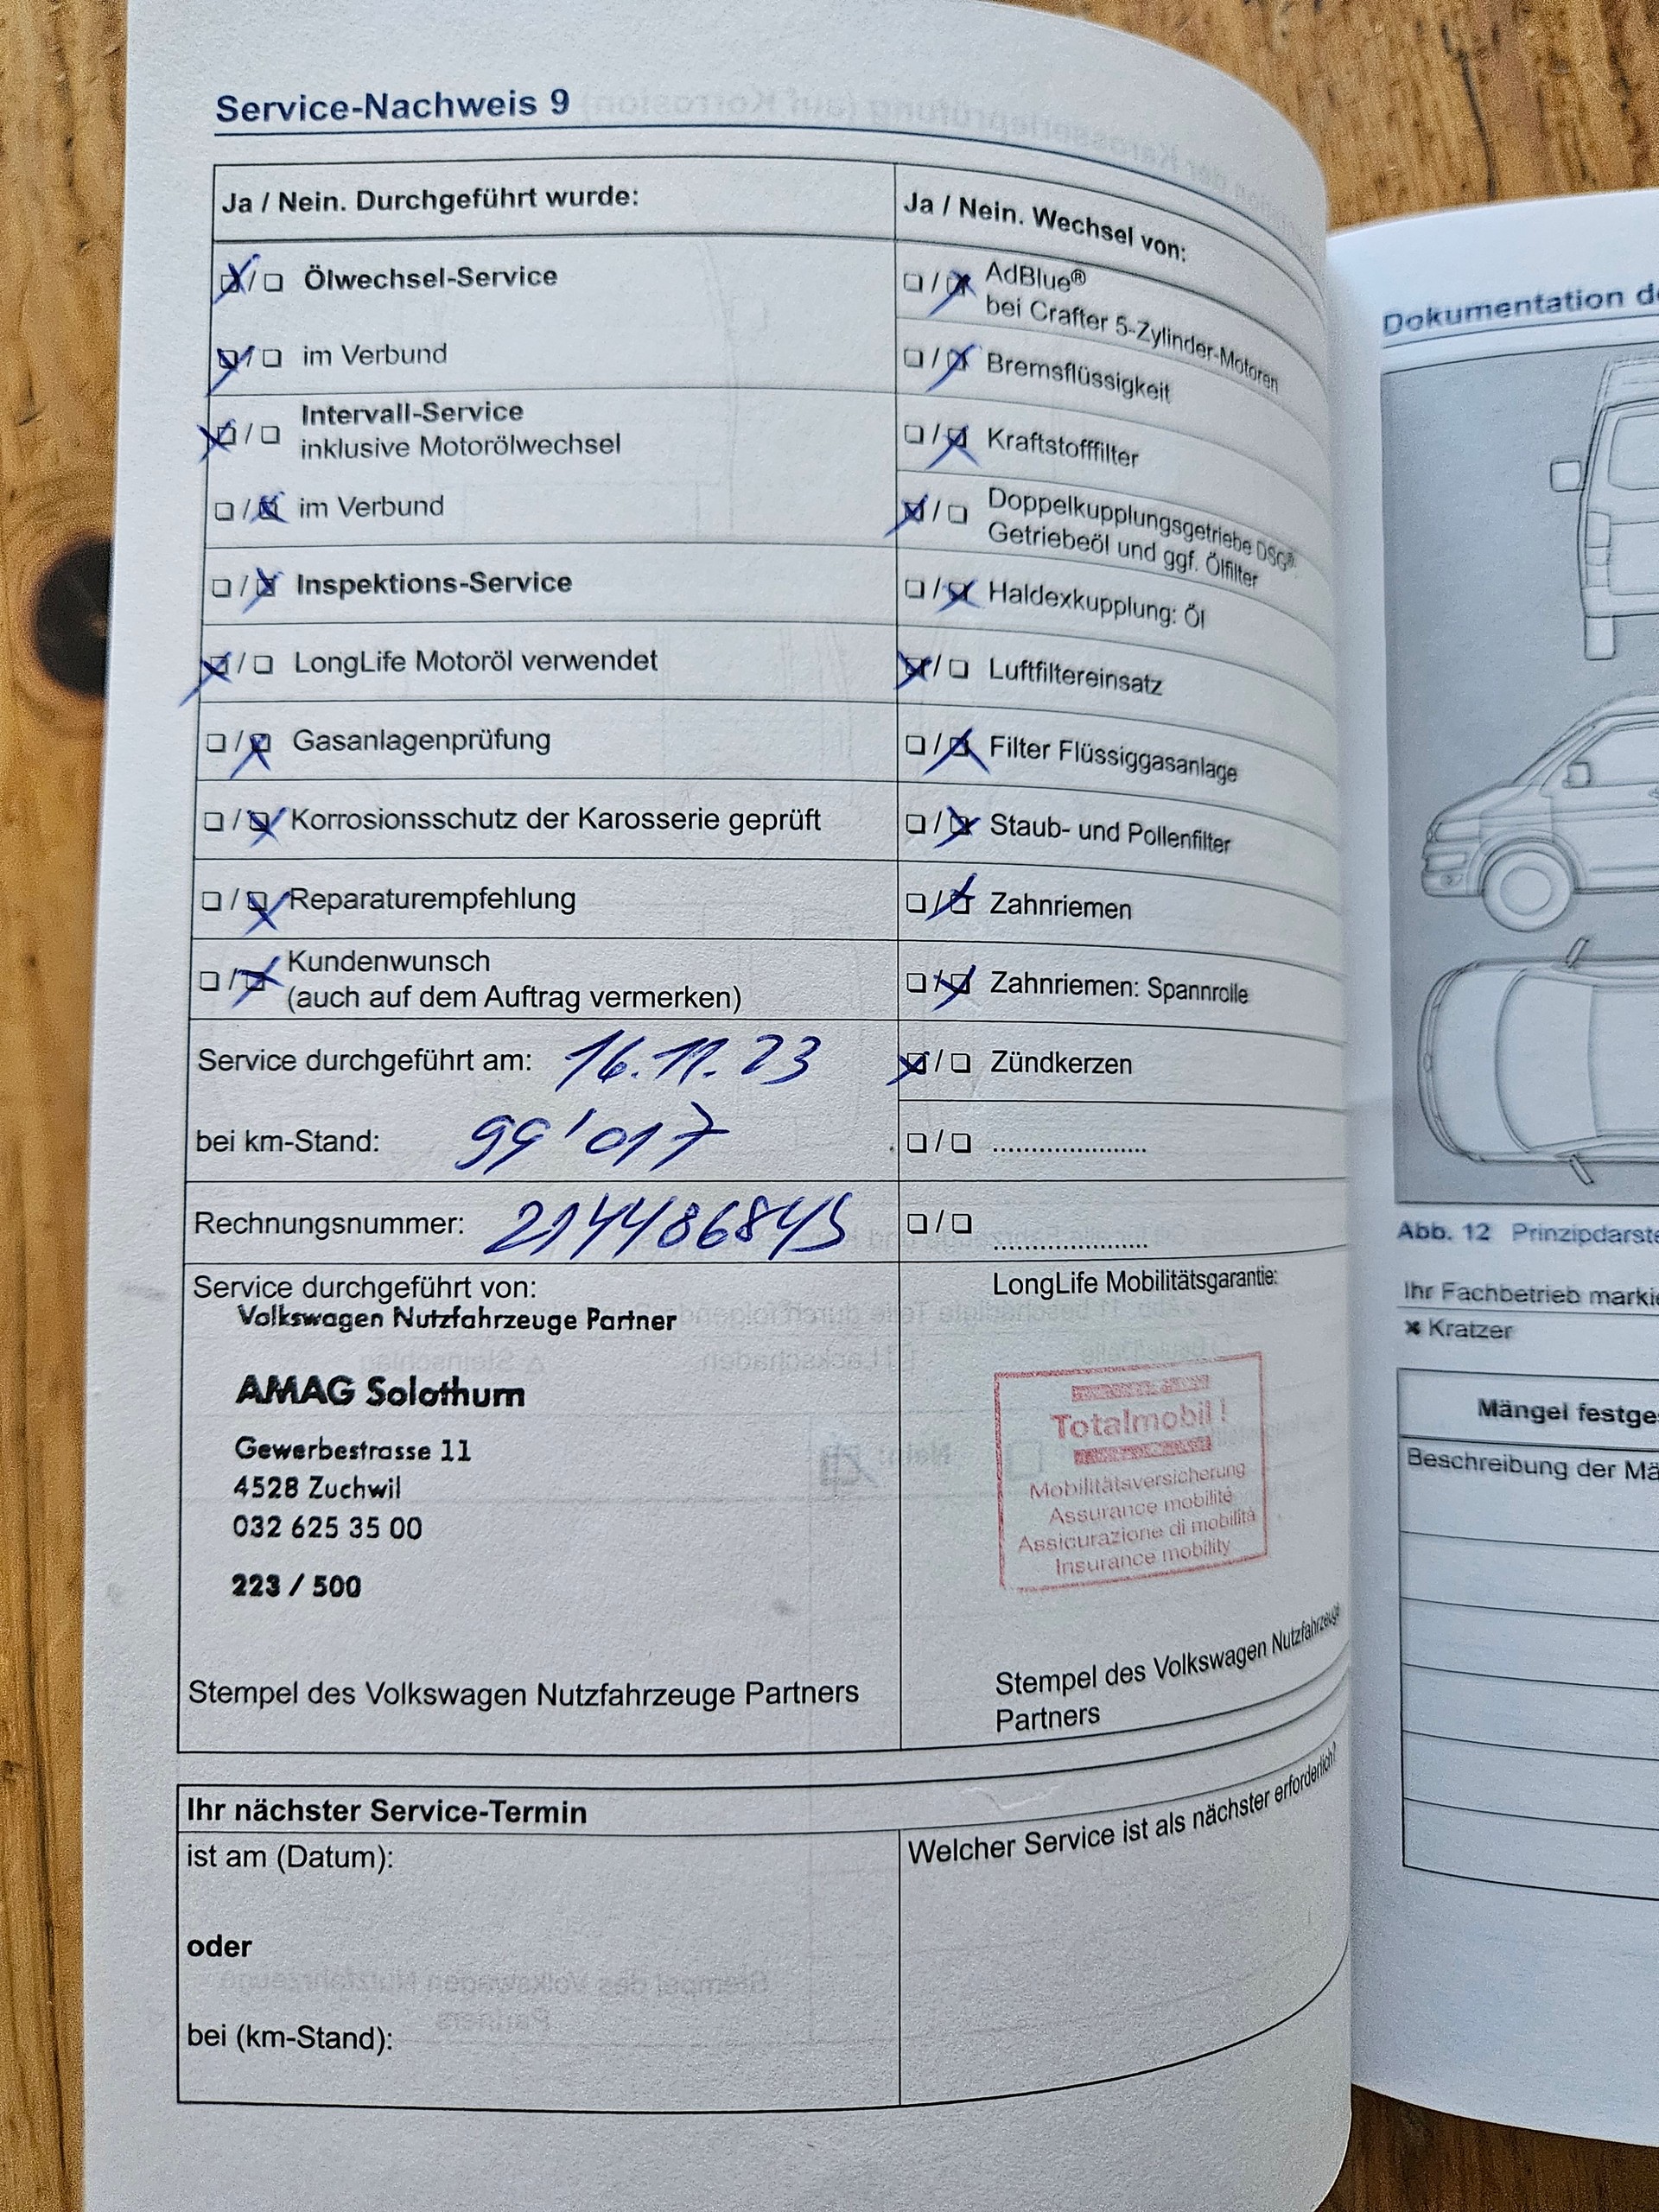 Service-Nachweis 9
Ja / Nein. Durchgeführt wurde:
☒/☐ Ölwechsel-Service
☒/☐ im Verbund
☒/☐ Intervall-Service
inklusive Motorölwechsel
☐/☒ im Verbund
☐/☒ Inspektions-Service
☒/☐ LongLife Motoröl verwendet
☐/☒ Gasanlagenprüfung
☐/☒ Korrosionsschutz der Karosserie geprüft
☐/☒ Reparaturempfehlung
☐/☒ Kundenwunsch
(auch auf dem Auftrag vermerken)
Service durchgeführt am: 16.11.23
bei km-Stand: 99'017
Rechnungsnummer: 214486845
Service durchgeführt von:
Volkswagen Nutzfahrzeuge Partner
AMAG Solothurn
Gewerbestrasse 11
4528 Zuchwil
032 625 35 00
223 / 500
Stempel des Volkswagen Nutzfahrzeuge Partners
Ja / Nein. Wechsel von:
☐/☒ AdBlue®
bei Crafter 5-Zylinder-Motoren
☐/☒ Bremsflüssigkeit
☐/☒ Kraftstofffilter
☒/☐ Doppelkupplungsgetriebe DSG®:
Getriebeöl und ggf. Ölfilter
☐/☒ Haldexkupplung: Öl
☒/☐ Luftfiltereinsatz
☐/☒ Filter Flüssiggasanlage
☐/☒ Staub- und Pollenfilter
☐/☒ Zahnriemen
☐/☒ Zahnriemen: Spannrolle
☒/☐ Zündkerzen
☐/☐ ......................
☐/☐ ......................
LongLife Mobilitätsgarantie:
Totalmobil!
Mobilitätsversicherung
Assurance mobilité
Assicurazione di mobilità
Insurance mobility
Stempel des Volkswagen Nutzfahrzeuge
Partners
Ihr nächster Service-Termin
ist am (Datum):
oder
bei (km-Stand):
Welcher Service ist als nächster erforderlich?
Dokumentation
Abb. 12
Ihr Fachbetrieb
✖ Kratzer
Mängel
Beschreibung der